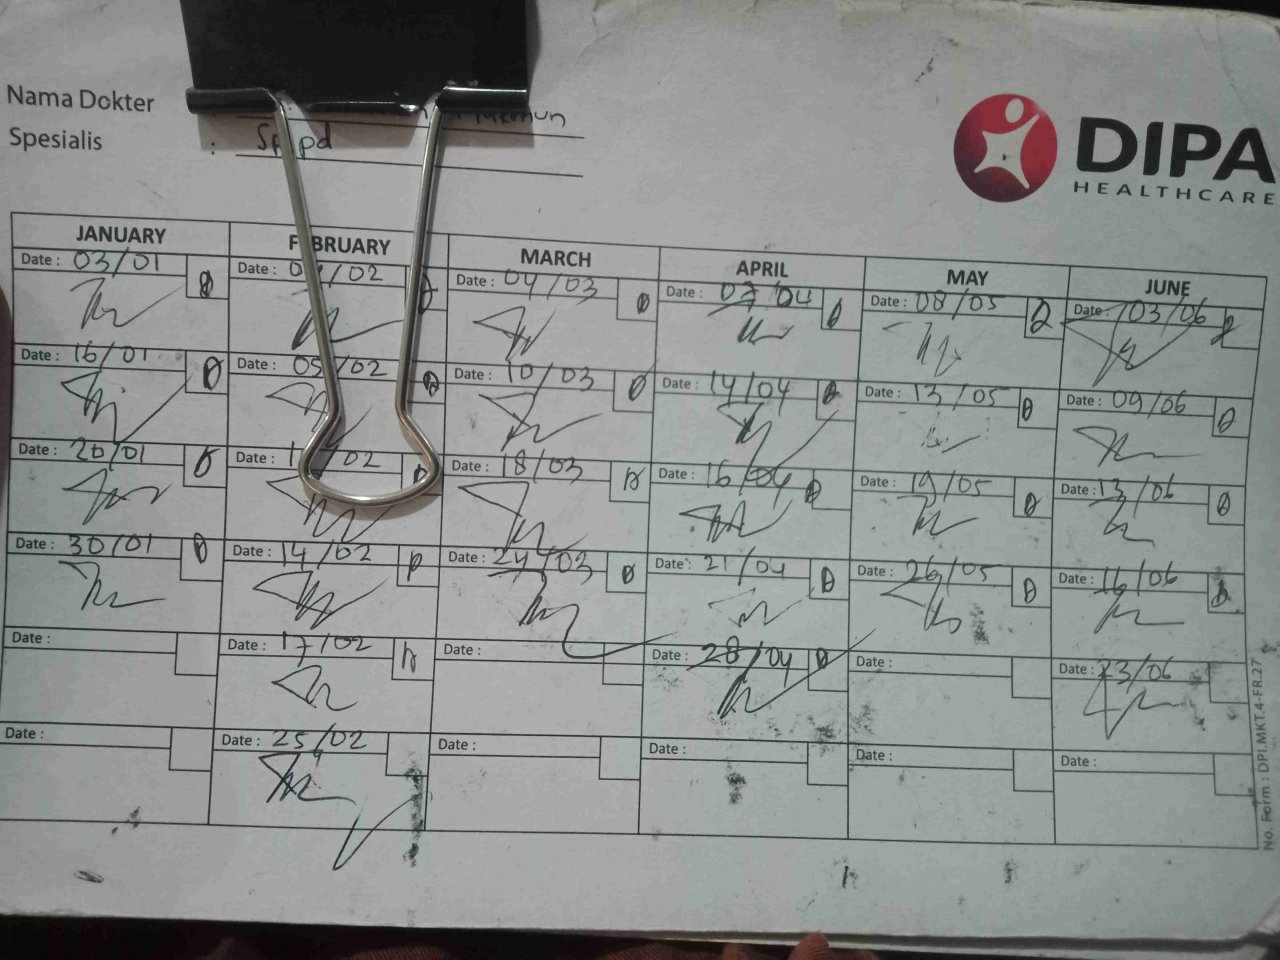 Nama Dokter
Spesialis : Sp pd
DIPA
HEALTHCARE
JANUARY FEBRUARY MARCH APRIL MAY JUNE
Date : 03/01 Date : /02 Date : 04/03 Date : 07/04 Date : 08/05 Date : 03/06
Date : 16/01 Date : 05/02 Date : 10/03 Date : 14/04 Date : 13/05 Date : 09/06
Date : 20/01 Date : /02 Date : 18/03 Date : 16/04 Date : 19/05 Date : 13/06
Date : 30/01 Date : 14/02 Date : 24/03 Date : 21/04 Date : 26/05 Date : 16/06
Date : Date : 17/02 Date : Date : 28/04 Date : Date : 23/06
Date : Date : 25/02 Date : Date : Date : Date :
No. Form : DPI.MKT.4-FR.27